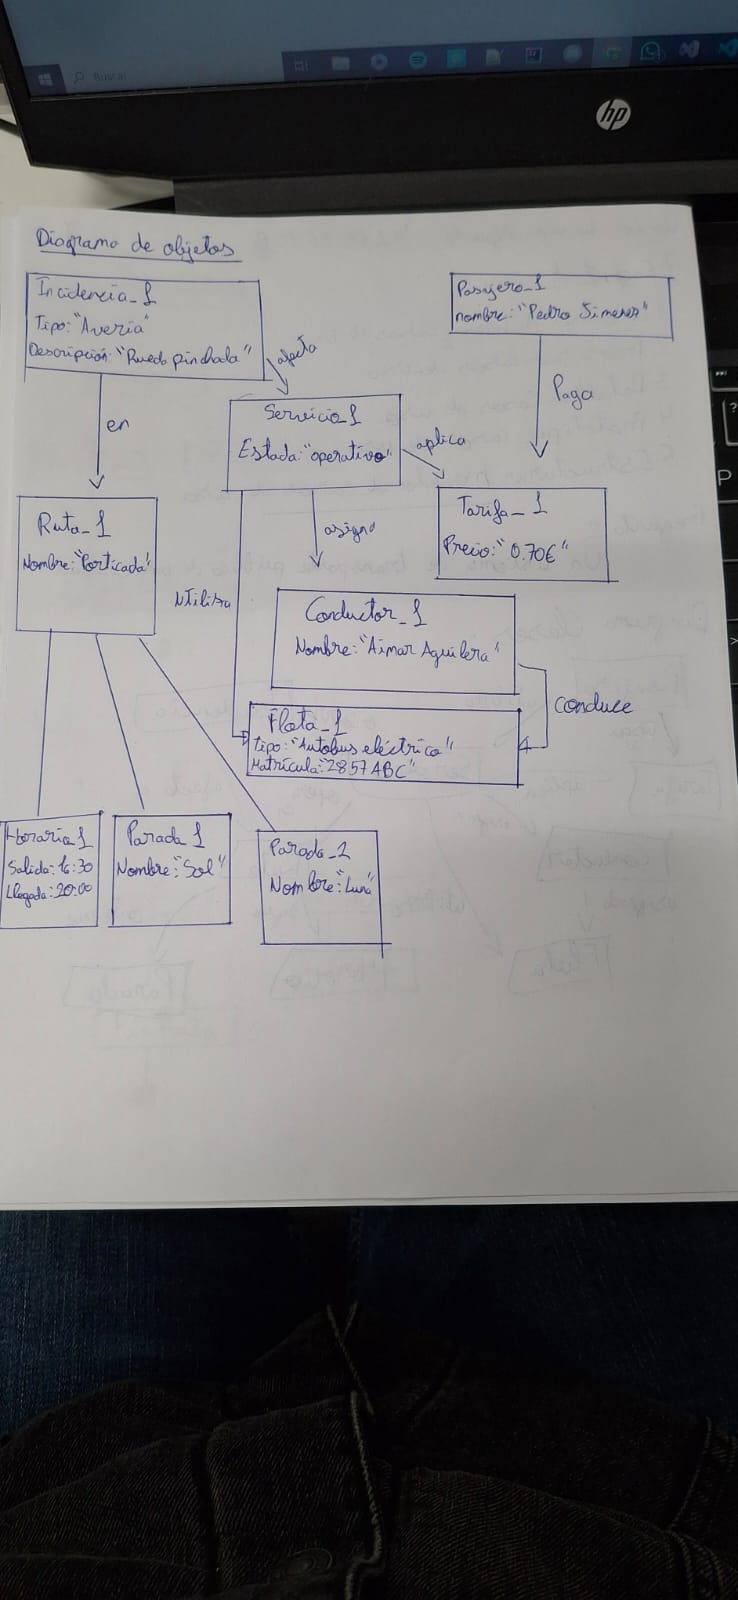 Buscar
hp
Diagrama de objetos
Incidencia_1
Tipo: "Averia"
Descripción: "Rueda pinchada"
afecta
Pasajero_1
nombre: "Pedro Jimenez"
en
Servicio_1
Estado: "operativo"
aplica
Paga
Ruta_1
Nombre: "Porticada"
Utiliza
asigna
Tarifa_1
Precio: "0.70€"
Conductor_1
Nombre: "Aimar Aguilera"
Conduce
Flota_1
Tipo: "Autobus eléctrico"
Matrícula: "2857 ABC"
Horario_1
Salida: 16:30
Llegada: 20:00
Parada_1
Nombre: "Sol"
Parada_2
Nombre: "Luna"
P